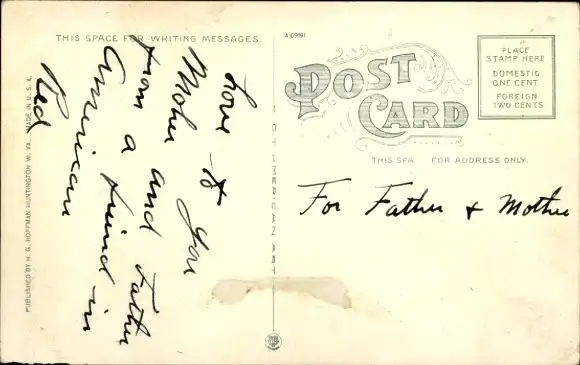 THIS SPACE FOR WRITING MESSAGES.
A-69191
POST CARD
PLACE
STAMP HERE
DOMESTIC
ONE CENT
FOREIGN
TWO CENTS
THIS SPA FOR ADDRESS ONLY.
Love to you
Mother and Father
from a friend in
American
Red
For Father & Mother
PUBLISHED BY H. G. HOFFMAN HUNTINGTON W. VA. MADE IN U. S. A.
AMERICAN ART